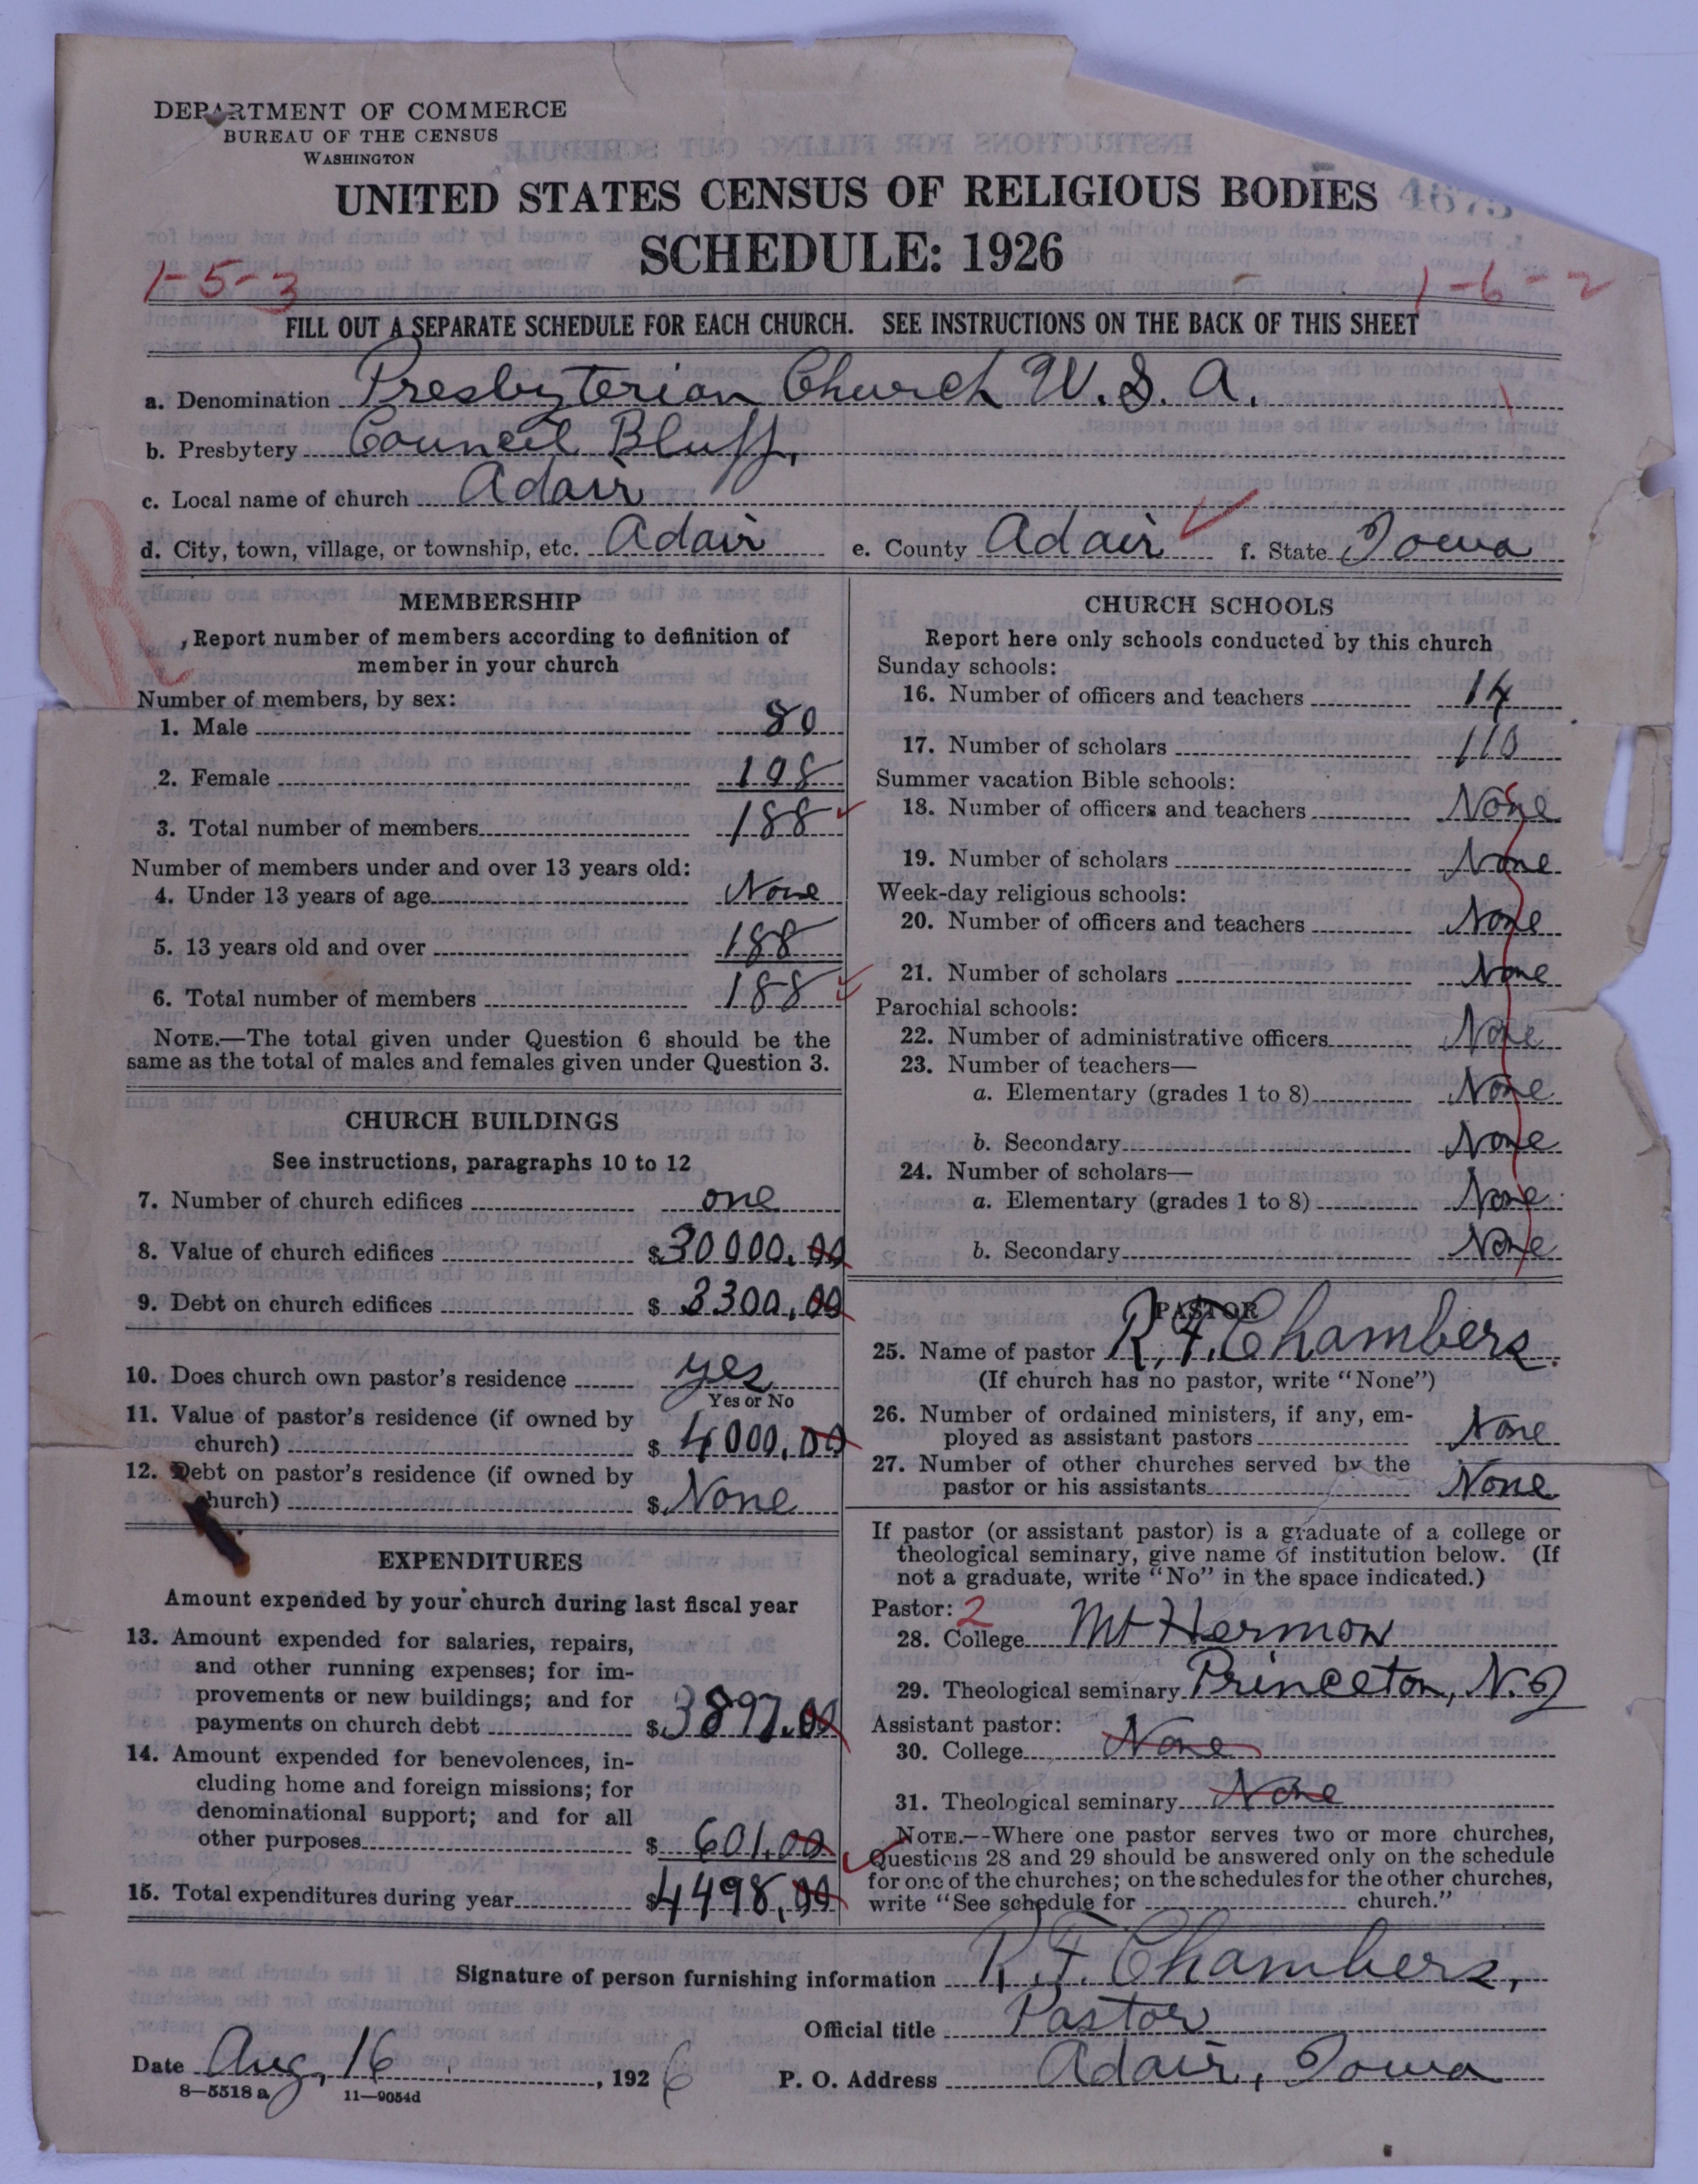 DEPARTMENT OF COMMERCE
BUREAU OF THE CENSUS
WASHINGTON
UNITED STATES CENSUS OF RELIGIOUS BODIES
4673
SCHEDULE: 1926
1-5-3
1-6-2
FILL OUT A SEPARATE SCHEDULE FOR EACH CHURCH. SEE INSTRUCTIONS ON THE BACK OF THIS SHEET
a. Denomination Presbyterian Church U.S.A.
b. Presbytery Council Bluff,
c. Local name of church Adair
d. City, town, village, or township, etc. Adair e. County Adair f. State Iowa
R
MEMBERSHIP
Report number of members according to definition of
member in your church
Number of members, by sex:
1. Male 80
2. Female 108
3. Total number of members 188
Number of members under and over 13 years old:
4. Under 13 years of age None
5. 13 years old and over 188
6. Total number of members 188
NOTE.—The total given under Question 6 should be the
same as the total of males and females given under Question 3.
CHURCH BUILDINGS
See instructions, paragraphs 10 to 12
7. Number of church edifices one
8. Value of church edifices $30000.00
9. Debt on church edifices $3300.00
10. Does church own pastor's residence yes
Yes or No
11. Value of pastor's residence (if owned by
church) $4000.00
12. Debt on pastor's residence (if owned by
church) $None
EXPENDITURES
Amount expended by your church during last fiscal year
13. Amount expended for salaries, repairs,
and other running expenses; for im-
provements or new buildings; and for
payments on church debt $3897.00
14. Amount expended for benevolences, in-
cluding home and foreign missions; for
denominational support; and for all
other purposes $601.00
15. Total expenditures during year $4498.00
CHURCH SCHOOLS
Report here only schools conducted by this church
Sunday schools:
16. Number of officers and teachers 14
17. Number of scholars 110
Summer vacation Bible schools:
18. Number of officers and teachers None
19. Number of scholars None
Week-day religious schools:
20. Number of officers and teachers None
21. Number of scholars None
Parochial schools:
22. Number of administrative officers None
23. Number of teachers—
a. Elementary (grades 1 to 8) None
b. Secondary None
24. Number of scholars—
a. Elementary (grades 1 to 8) None
b. Secondary None
PASTOR
25. Name of pastor R. F. Chambers.
(If church has no pastor, write "None")
26. Number of ordained ministers, if any, em-
ployed as assistant pastors None
27. Number of other churches served by the
pastor or his assistants None
If pastor (or assistant pastor) is a graduate of a college or
theological seminary, give name of institution below. (If
not a graduate, write "No" in the space indicated.)
Pastor: 2
28. College Mt Hermon
29. Theological seminary Princeton, N.J
Assistant pastor:
30. College None
31. Theological seminary None
NOTE.--Where one pastor serves two or more churches,
Questions 28 and 29 should be answered only on the schedule
for one of the churches; on the schedules for the other churches,
write "See schedule for church."
Signature of person furnishing information R. F. Chambers,
Official title Pastor
Date Aug, 16, 1926 P. O. Address Adair, Iowa
8—5518 a 11—9054d